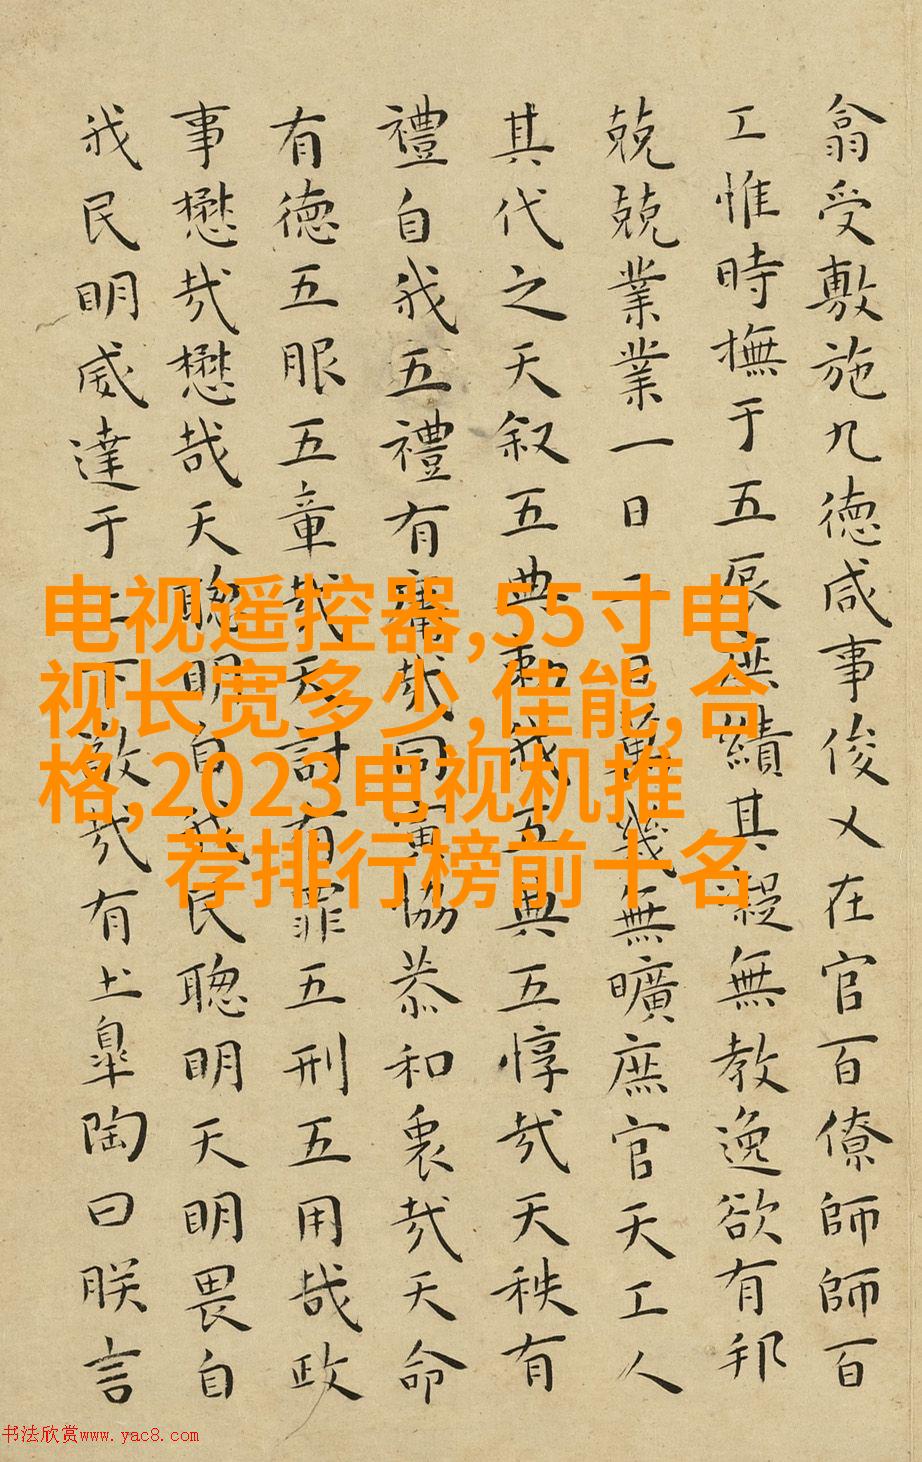 翕受敷施九德咸事俊乂在官百僚師師百
工惟時撫于五辰庶績其凝無教逸欲有邦
兢兢業業一日二日萬幾無曠庶官天工人
其代之天叙五典勑我五典五惇哉天秩有
禮自我五禮有庸哉同寅協恭和衷哉天命
有德五服五章哉天討有罪五刑五用哉政
事懋哉懋哉天聰明自我民聰明天明畏自
我民明威達于上下敬哉有土皐陶曰朕言
电视遥控器,55寸电
视长宽多少,佳能,合
格,2023电视机推
荐排行榜前十名
书法欣赏www.yac8.com